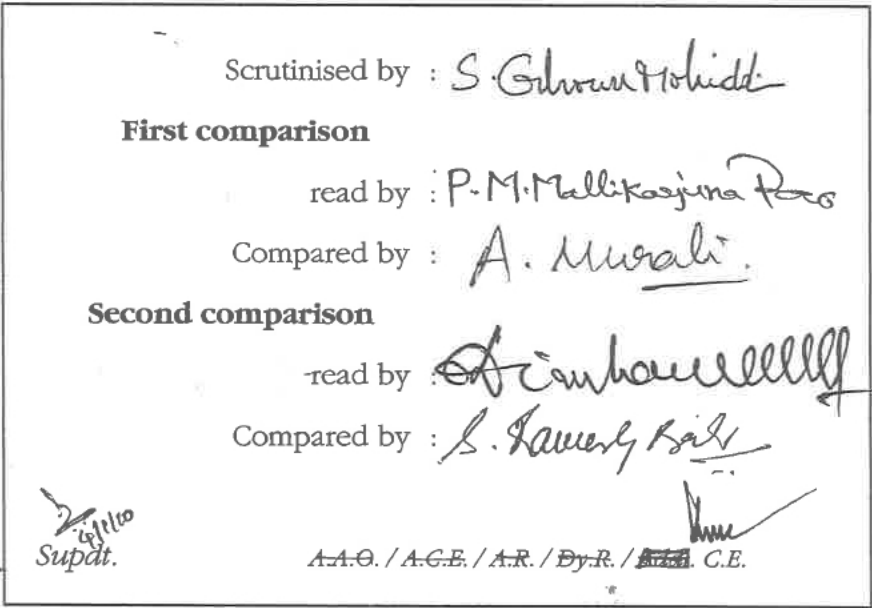 Scrutinised by : S.
First comparison
read by : P.M. Mallikarjuna Rao
Compared by : A. Murali.
Second comparison
read by :
Compared by : S.
Supdt.
A.A.O. / A.C.E. / A.R. / Dy.R. / C.E.